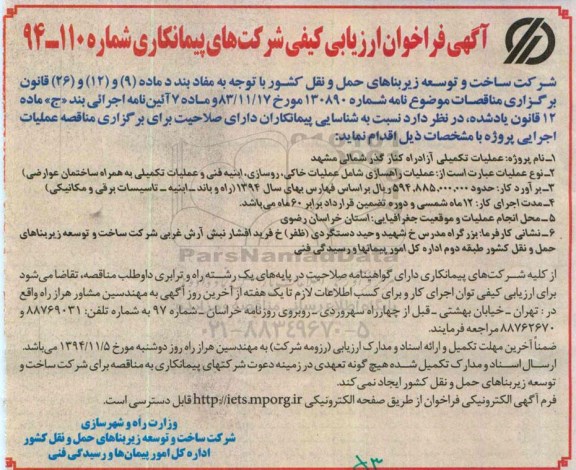 آگهی فراخوان ارزیابی کیفی شرکت‌های پیمانکاری شماره ۱۱۰ـ۹۴
شرکت ساخت و توسعه زیربناهای حمل و نقل کشور با توجه به مفاد بند د ماده (۹) و (۱۲) و (۲۶) قانون
برگزاری مناقصات موضوع نامه شماره ۱۳۰۸۹۰ مورخ ۸۳/۱۱/۱۷ و ماده ۷ آئین نامه اجرائی بند «ج» ماده
۱۲ قانون یادشده، در نظر دارد نسبت به شناسایی پیمانکاران دارای صلاحیت برای برگزاری مناقصه عملیات
اجرایی پروژه با مشخصات ذیل اقدام نماید:
۱ـ نام پروژه: عملیات تکمیلی آزادراه کنار گذر شمالی مشهد
۲ـ نوع عملیات عبارت است از: عملیات راهسازی شامل عملیات خاکی، روسازی، ابنیه فنی و عملیات تکمیلی به همراه ساختمان عوارضی)
۳ـ برآورد کار: حدود ۵۹۴,۸۸۵,۰۰۰,۰۰۰ ریال بر اساس فهارس بهای سال ۱۳۹۴ (راه و باند ـ ابنیه ـ تاسیسات برقی و مکانیکی)
۴ـ مدت اجرای کار: ۱۲ ماه شمسی و دوره تضمین قرارداد برابر ۶۰ ماه می‌باشد.
۵ـ محل انجام عملیات و موقعیت جغرافیایی: استان خراسان رضوی
۶ـ نشانی کارفرما: بزرگراه مدرس خ شهید وحید دستگردی (ظفر) خ فرید افشار نبش آرش غربی شرکت ساخت و توسعه زیربناهای
حمل و نقل کشور طبقه دوم اداره کل امور پیمانها و رسیدگی فنی
از کلیه شرکت‌های پیمانکاری دارای گواهینامه صلاحیت در پایه‌های یک رشته راه و ترابری داوطلب مناقصه، تقاضا می‌شود
برای ارزیابی کیفی توان اجرای کار و برای کسب اطلاعات لازم تا یک هفته از آخرین روز آگهی به مهندسین مشاور هراز راه واقع
در : تهران ـ خیابان بهشتی ـ قبل از چهارراه سهروردی ـ روبروی روزنامه خراسان ـ شماره ۹۷ به شماره تلفن: ۸۸۷۶۹۰۳۱ و
۸۸۷۶۲۶۷۰ مراجعه فرمایند.
ضمناً آخرین مهلت تکمیل و ارائه اسناد و مدارک ارزیابی (رزومه شرکت) به مهندسین هراز راه روز دوشنبه مورخ ۱۳۹۴/۱۱/۵ می‌باشد.
ارسال اسناد و مدارک تکمیل شده هیچ گونه تعهدی در زمینه دعوت شرکتهای پیمانکاری به مناقصه برای شرکت ساخت و
توسعه زیربناهای حمل و نقل کشور ایجاد نمی‌کند.
فرم آگهی الکترونیکی فراخوان از طریق صفحه الکترونیکی http://iets.mporg.ir قابل دسترسی است.
وزارت راه و شهرسازی
شرکت ساخت و توسعه زیربناهای حمل و نقل کشور
اداره کل امور پیمان‌ها و رسیدگی فنی
ParsNamadData
۰۲۱-۸۸۳۴۹۶۷۰-۵